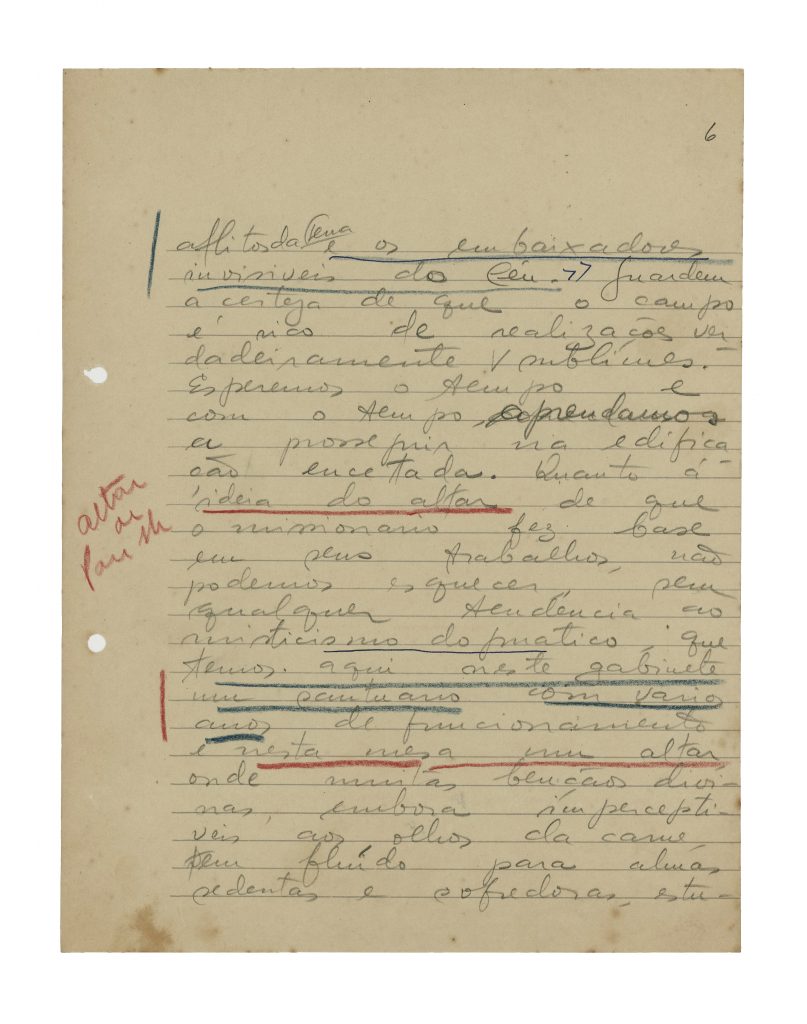 6
aflitos da Terra e os embaixadores
invisiveis do Céu. >> Guardem
a certeza de que o campo
é rico de realizações ver
dadeiramente sublimes. -
Esperemos o tempo e
com o tempo aprendamos
a prosseguir na edifica
ção encetada. Quanto á
ideia do altar de que
o missionario fez base
em seus trabalhos, não
podemos esquecer, sem
qualquer tendência ao
misticismo dopratico, que
temos aqui neste gabinete
um santuario com vario
anos de funcionamento
e nesta mesa um altar,
onde muitas bençãos divi-
nas, embora impercepti-
veis aos olhos da carne,
tem fluído para almas
sedentas e sofredoras, estu-
altar